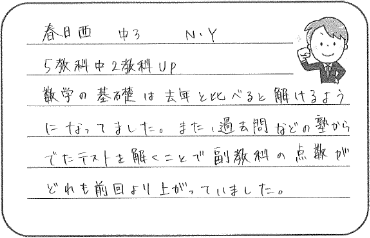 春日西 中3 N・Y
5教科中2教科UP
数学の基礎は去年と比べると解けるよう
になってました。また、過去問などの塾から
でたテストを解くことで副教科の点数が
どれも前回より上がっていました。